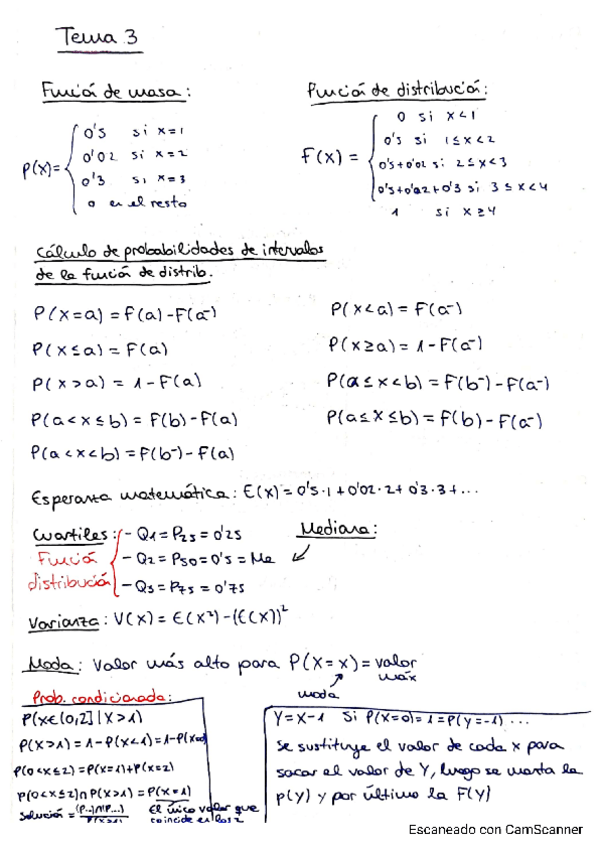 Tema 3
Función de masa:
P(x)=
0's si x=1
0'02 si x=2
0'3 si x=3
0 en el resto
Función de distribución:
F(x) =
0 si x<1
0's si 1≤x<2
0's+0'02 si 2≤x<3
0's+0'02+0'3 si 3≤x<4
1 si x≥4
Cálculo de probabilidades de intervalos
de la función de distrib.
P(x=a) = F(a)-F(a⁻)
P(x≤a) = F(a)
P(x>a) = 1-F(a)
P(a<x≤b) = F(b)-F(a)
P(a<x<b) = F(b⁻)-F(a)
P(x<a) = F(a⁻)
P(x≥a) = 1-F(a⁻)
P(a≤x<b) = F(b⁻)-F(a⁻)
P(a≤X≤b) = F(b)-F(a⁻)
Esperanza matemática: E(x)=0's·1+0'02·2+0'3·3+...
Cuartiles:
Función
distribución
- Q1=P25=0'25
- Q2=P50=0's=Me
- Q3=P75=0'75
Mediana:
Varianza: V(X)=E(X²)-(E(X))²
Moda: Valor más alto para P(X=x)=valor
máx
moda
Prob. condicionada:
P(x∈(0,2]|X>1)
P(X>1)=1-P(X<1)=1-P(X=0)
P(0<x≤2)=P(X=1)+P(X=2)
P(0<x≤2)∩P(X>1)=P(X=1)
Solución=(P...)∩(P...)/P(X>1)
El único valor que
coincide en los 2
Y=X-1 Si P(X=0)=1=P(Y=-1)...
Se sustituye el valor de cada x para
sacar el valor de Y, luego se monta la
p(Y) y por último la F(Y)
Escaneado con CamScanner